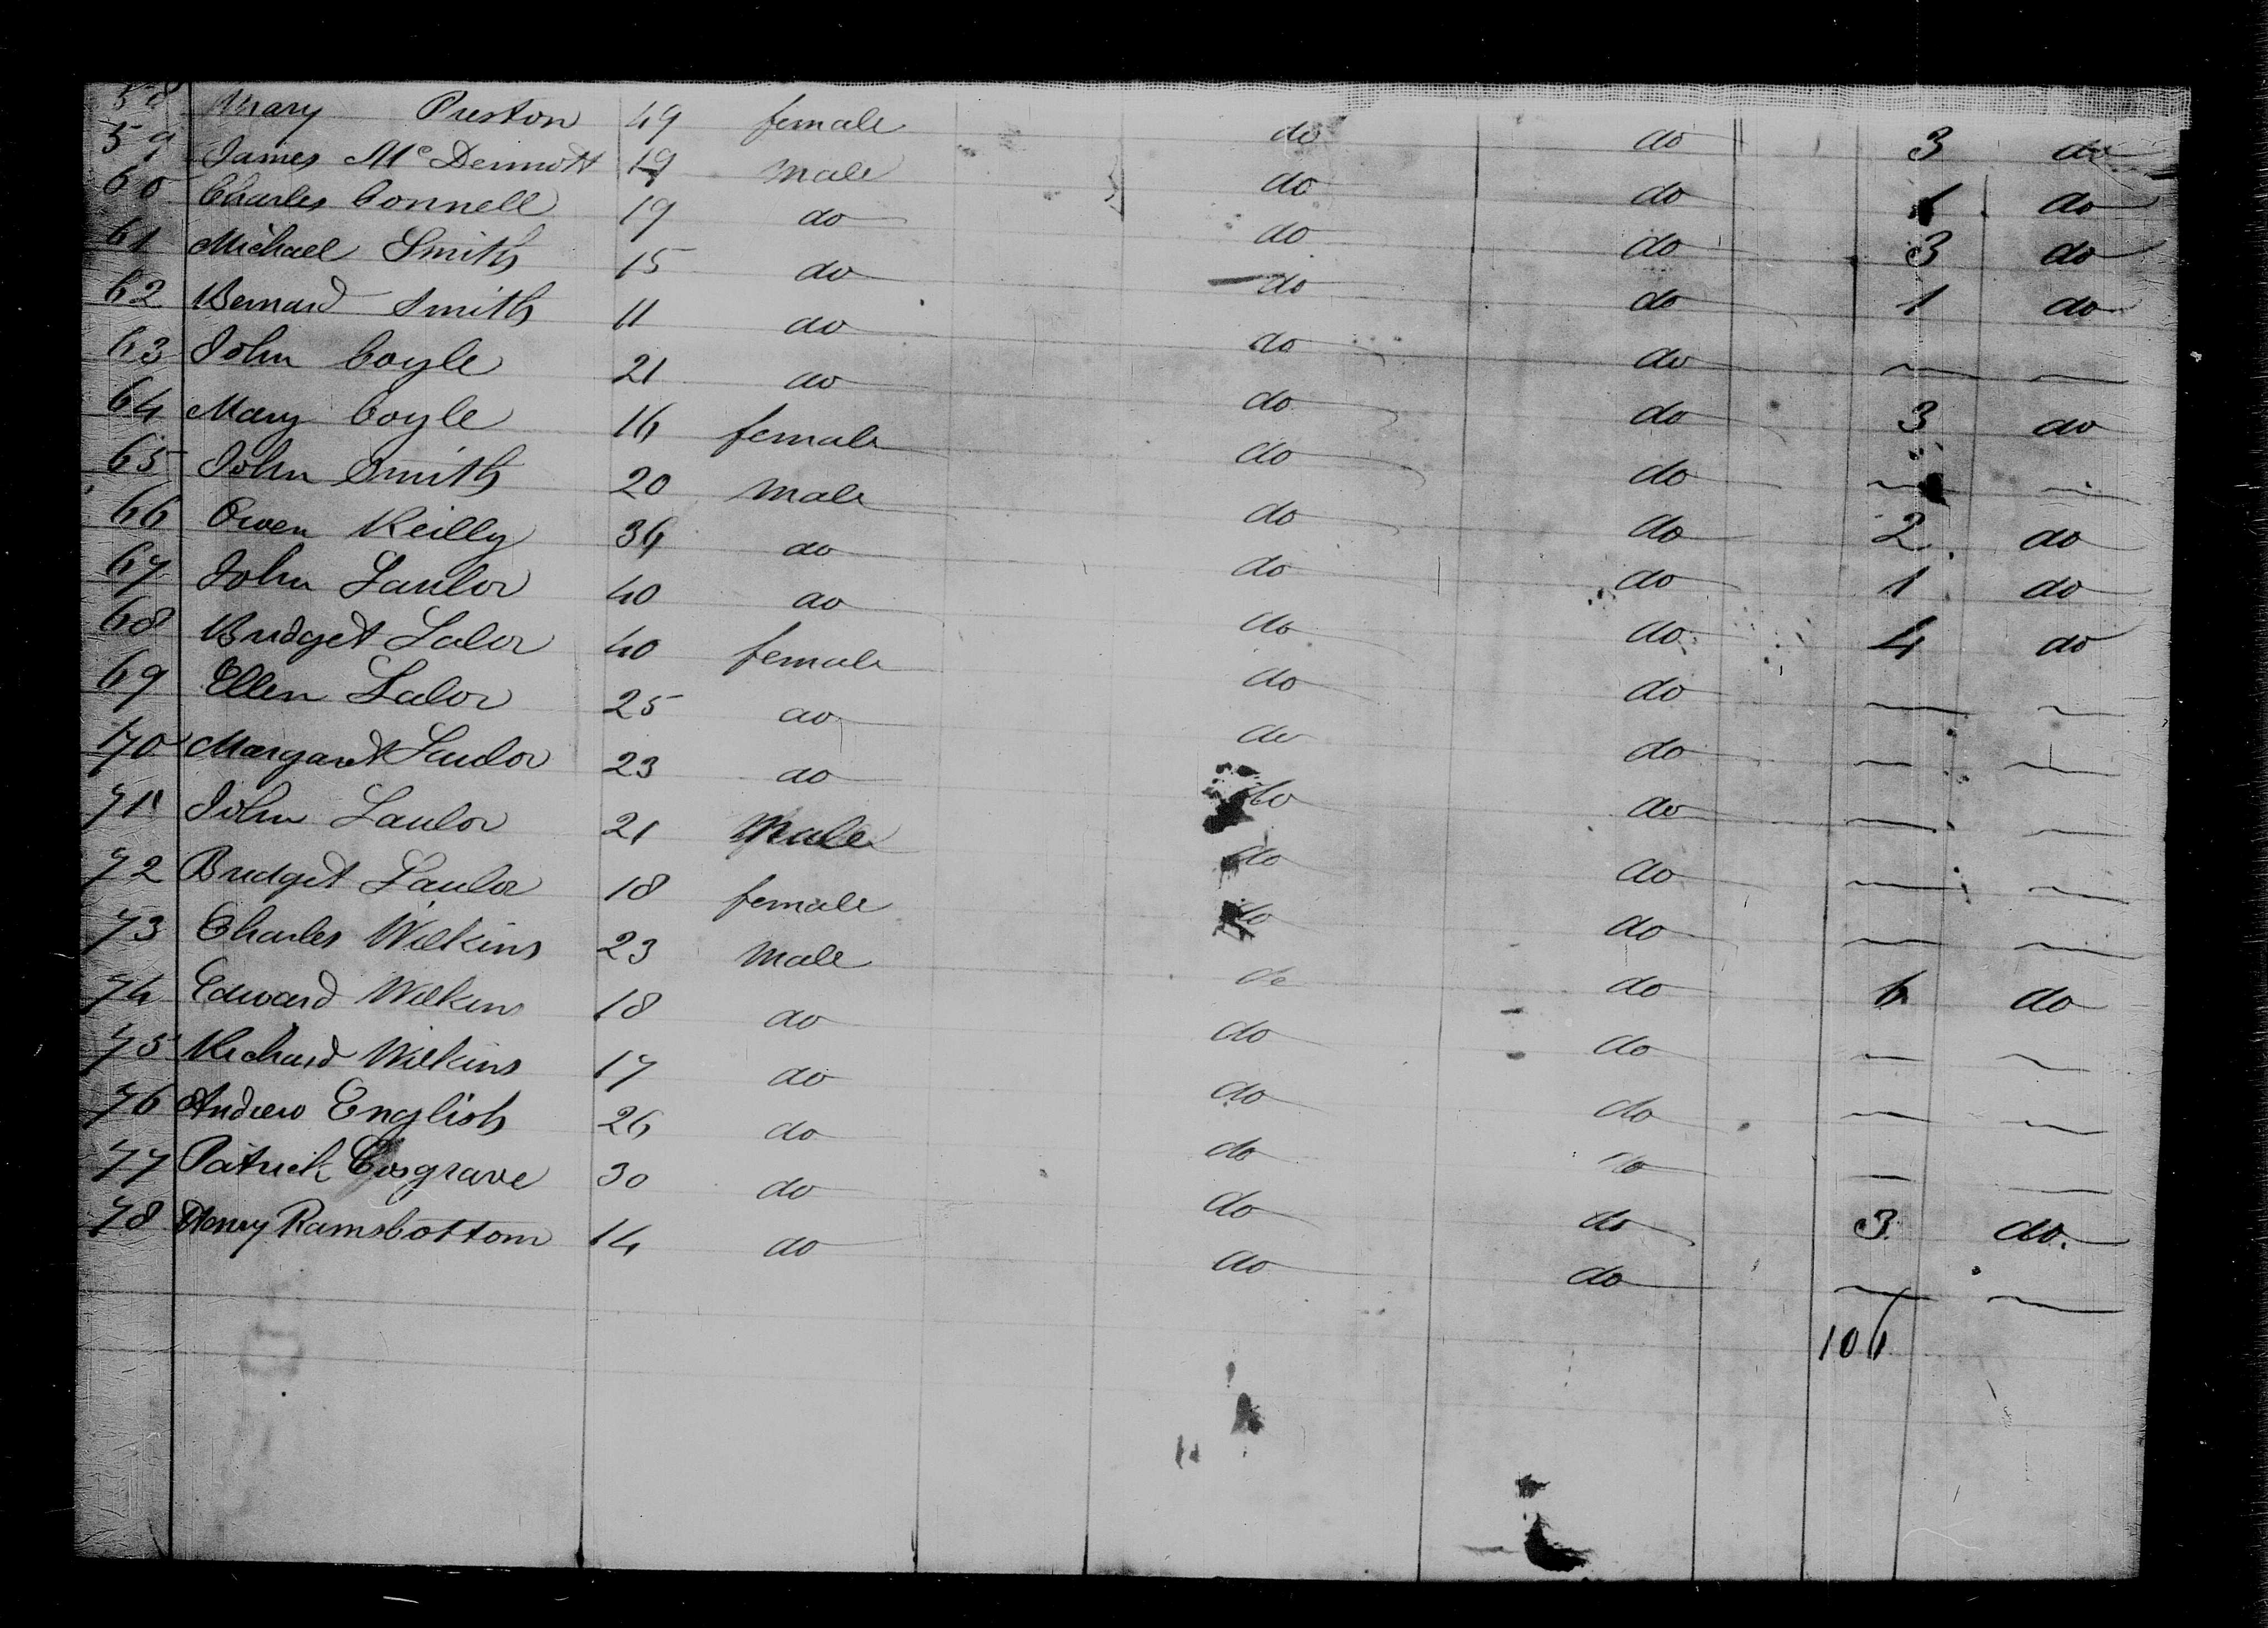 58 Mary Preston 49 female do do 3 do
59 James McDermott 19 male do do 1 do
60 Charles Connell 19 do do do 3 do
61 Michael Smith 15 do do do 1 do
62 Bernard Smith 11 do do do — —
63 John Coyle 21 do do do 3 do
64 Mary Coyle 16 female do do — —
65 John Smith 20 male do do 2 do
66 Owen Reilly 36 do do do 1 do
67 John Lawlor 40 do do do 4 do
68 Bridget Lalor 40 female do do — —
69 Ellen Lalor 25 do do do — —
70 Margaret Lawlor 23 do do do — —
71 John Lawlor 21 Male do do — —
72 Bridget Lawlor 18 female do do — —
73 Charles Wilkins 23 male do do 6 do
74 Edward Wilkins 18 do do do — —
75 Richard Wilkins 17 do do do — —
76 Andrew English 26 do do do — —
77 Patrick Cosgrave 30 do do do 3 do.
78 Henry Ramsbottom 14 do do do — —
106